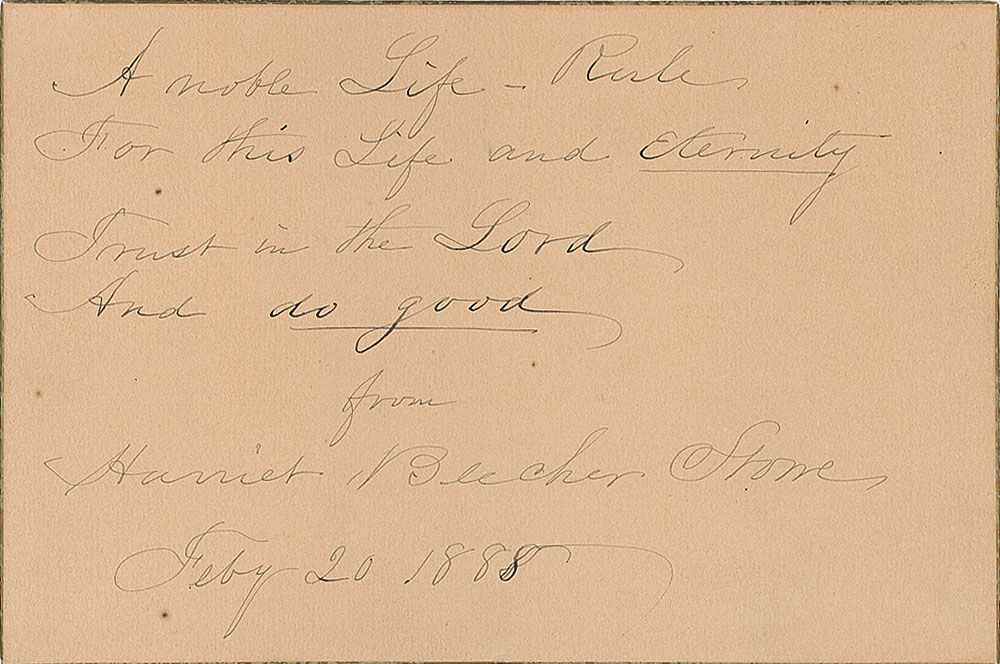 A noble Life - Rule
For this Life and Eternity
Trust in the Lord
And do good
from
Harriet Beecher Stowe
Feby 20 1888